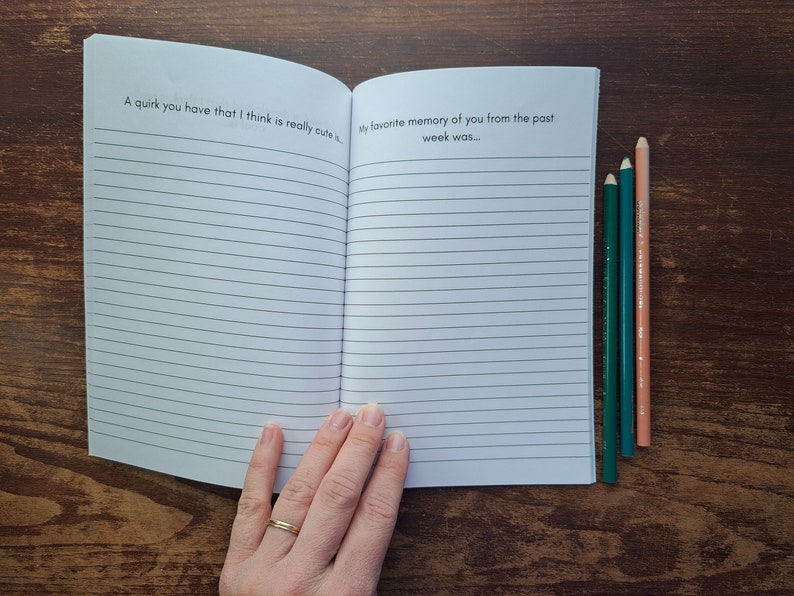 A quirk you have that I think is really cute is...
My favorite memory of you from the past
week was...